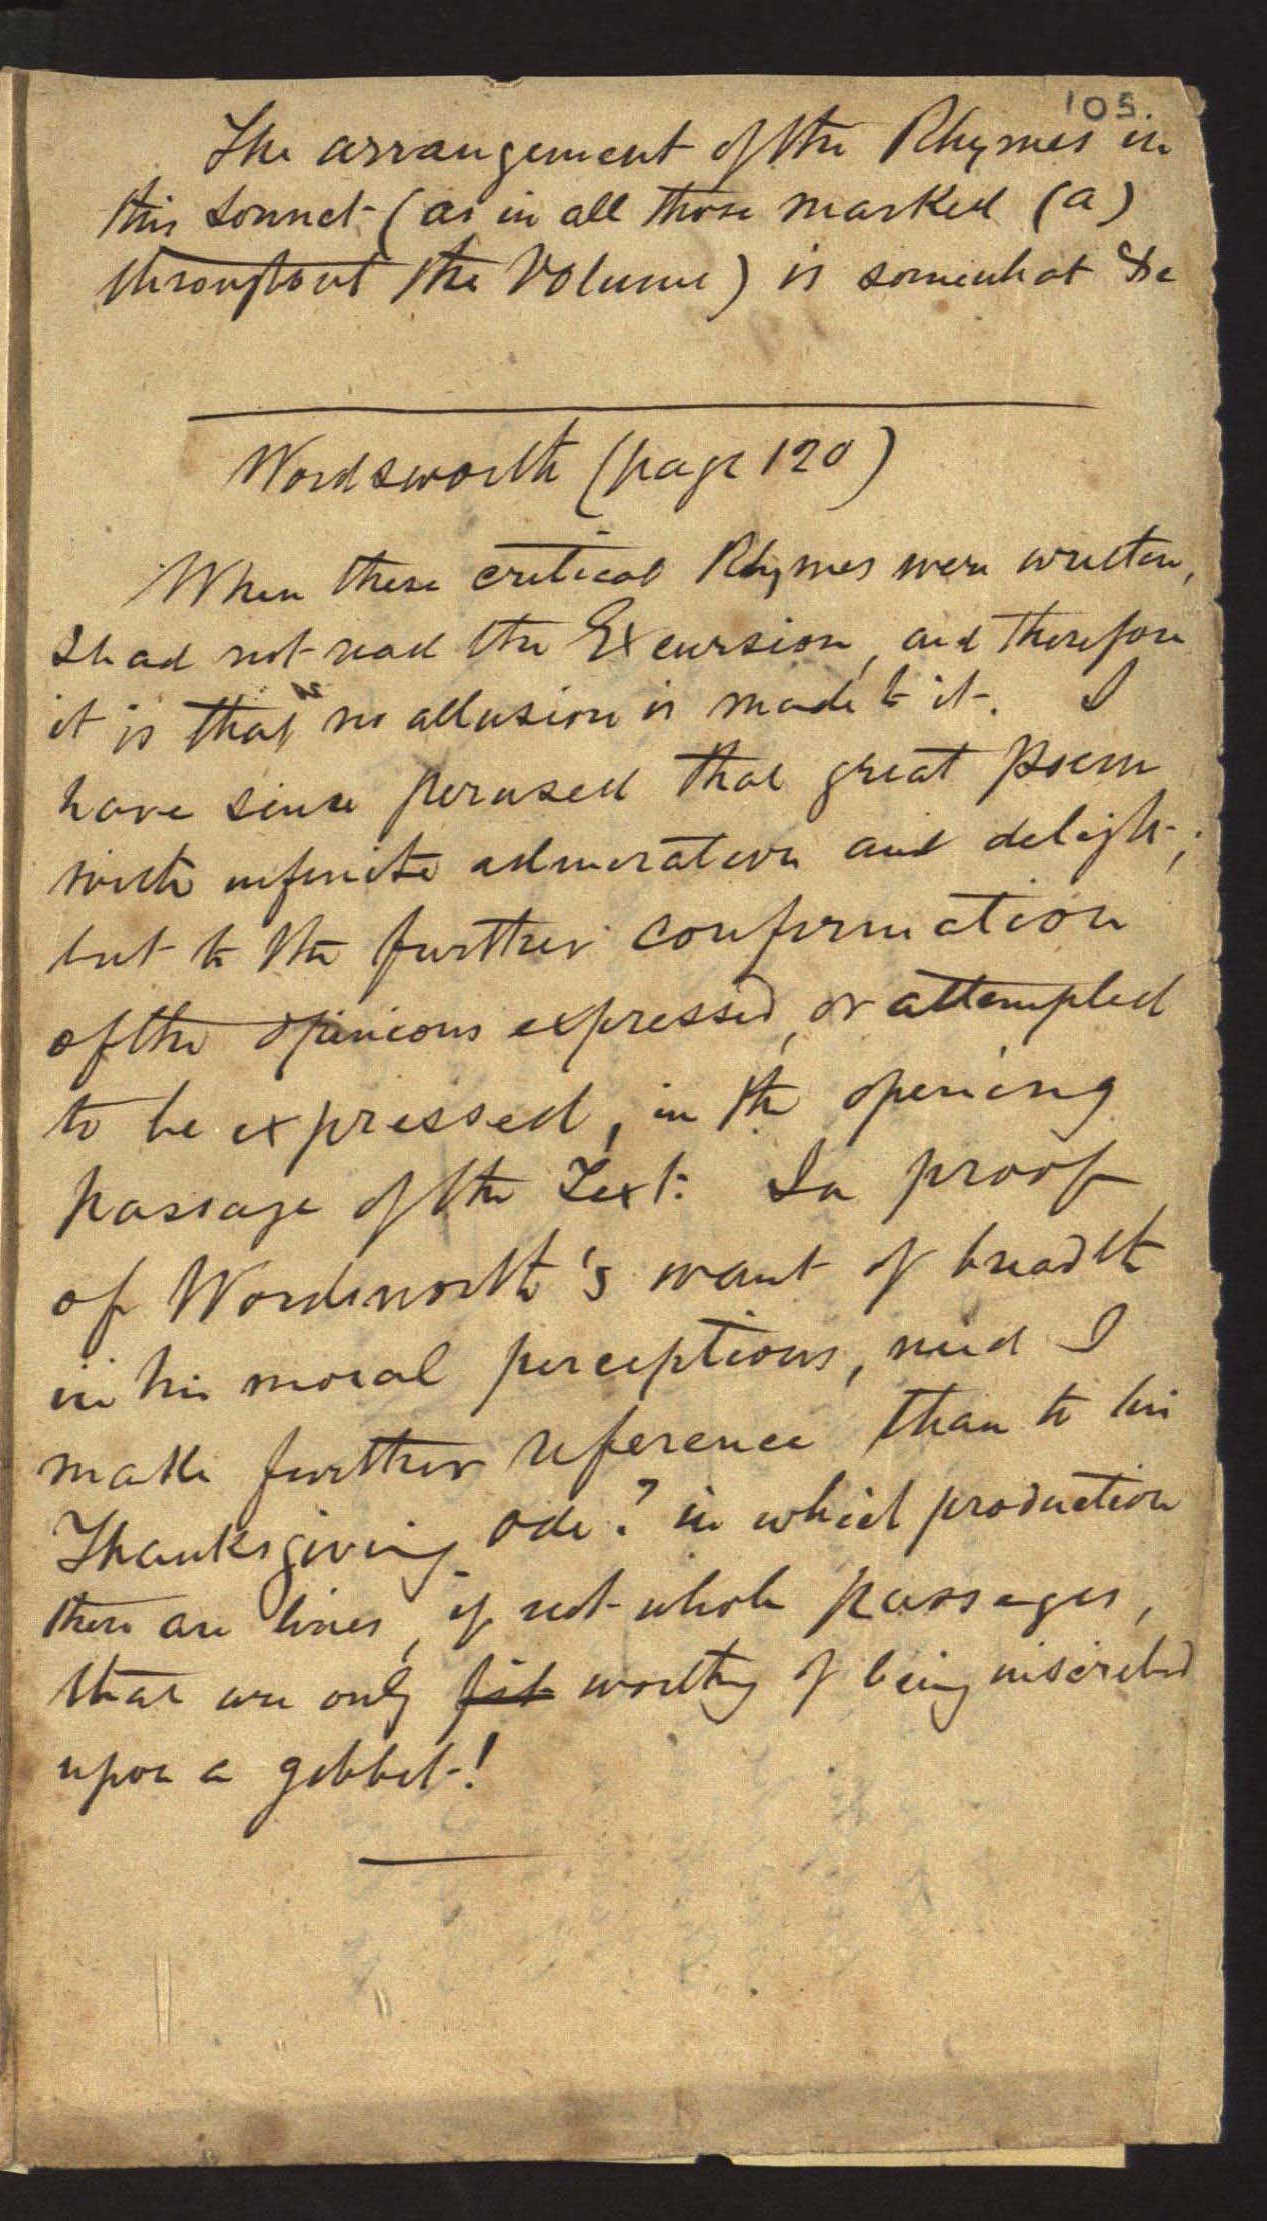 105.
The arrangement of the Rhymes in
this Sonnet (as in all those marked (a)
throughout the Volume) is somewhat &c
Wordsworth (page 120)
When these critical Rhymes were written,
I had not read the Excursion, and therefore
it is that no allusion is made to it. I
have since perused that great poem
with infinite admiration and delight;
but to the further confirmation
of the opinions expressed, or attempted
to be expressed, in the opening
passage of the Text. In proof
of Wordsworth's want of breadth
in his moral perceptions, need I
make further reference than to his
Thanksgiving Ode? in which production
there are lines, if not whole passages,
that are only fit worthy of being inscribed
upon a gibbet!